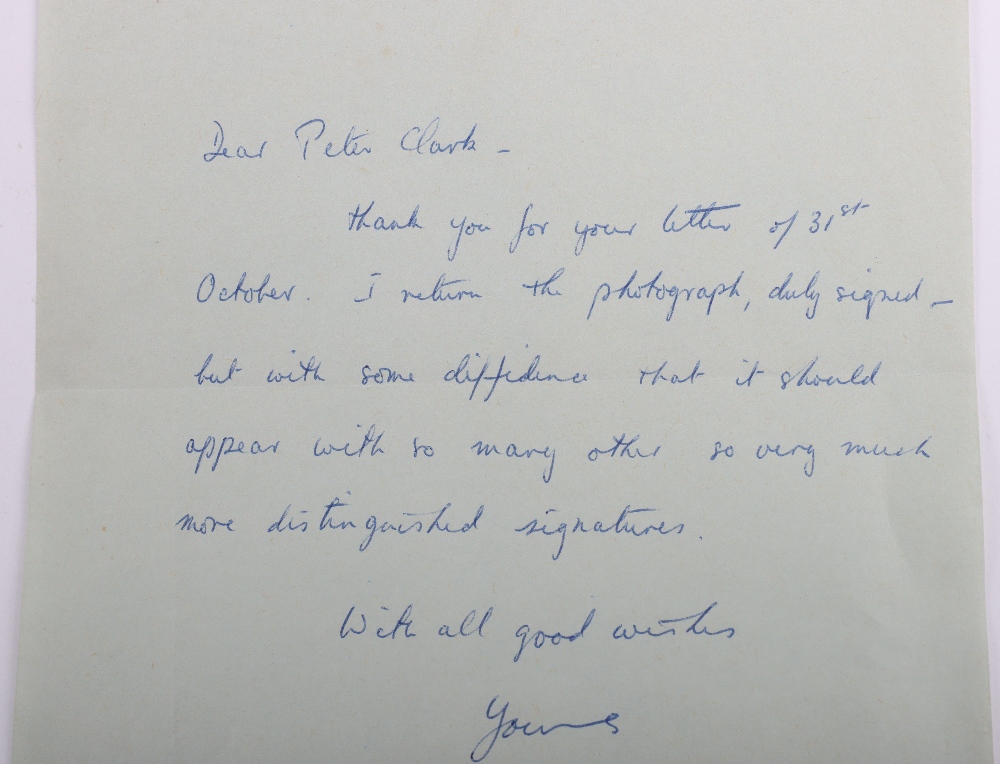 Dear Peter Clark –
thank you for your letter of 31st
October. I return the photograph, duly signed –
but with some diffidence that it should
appear with so many other so very much
more distinguished signatures.
With all good wishes
Yours